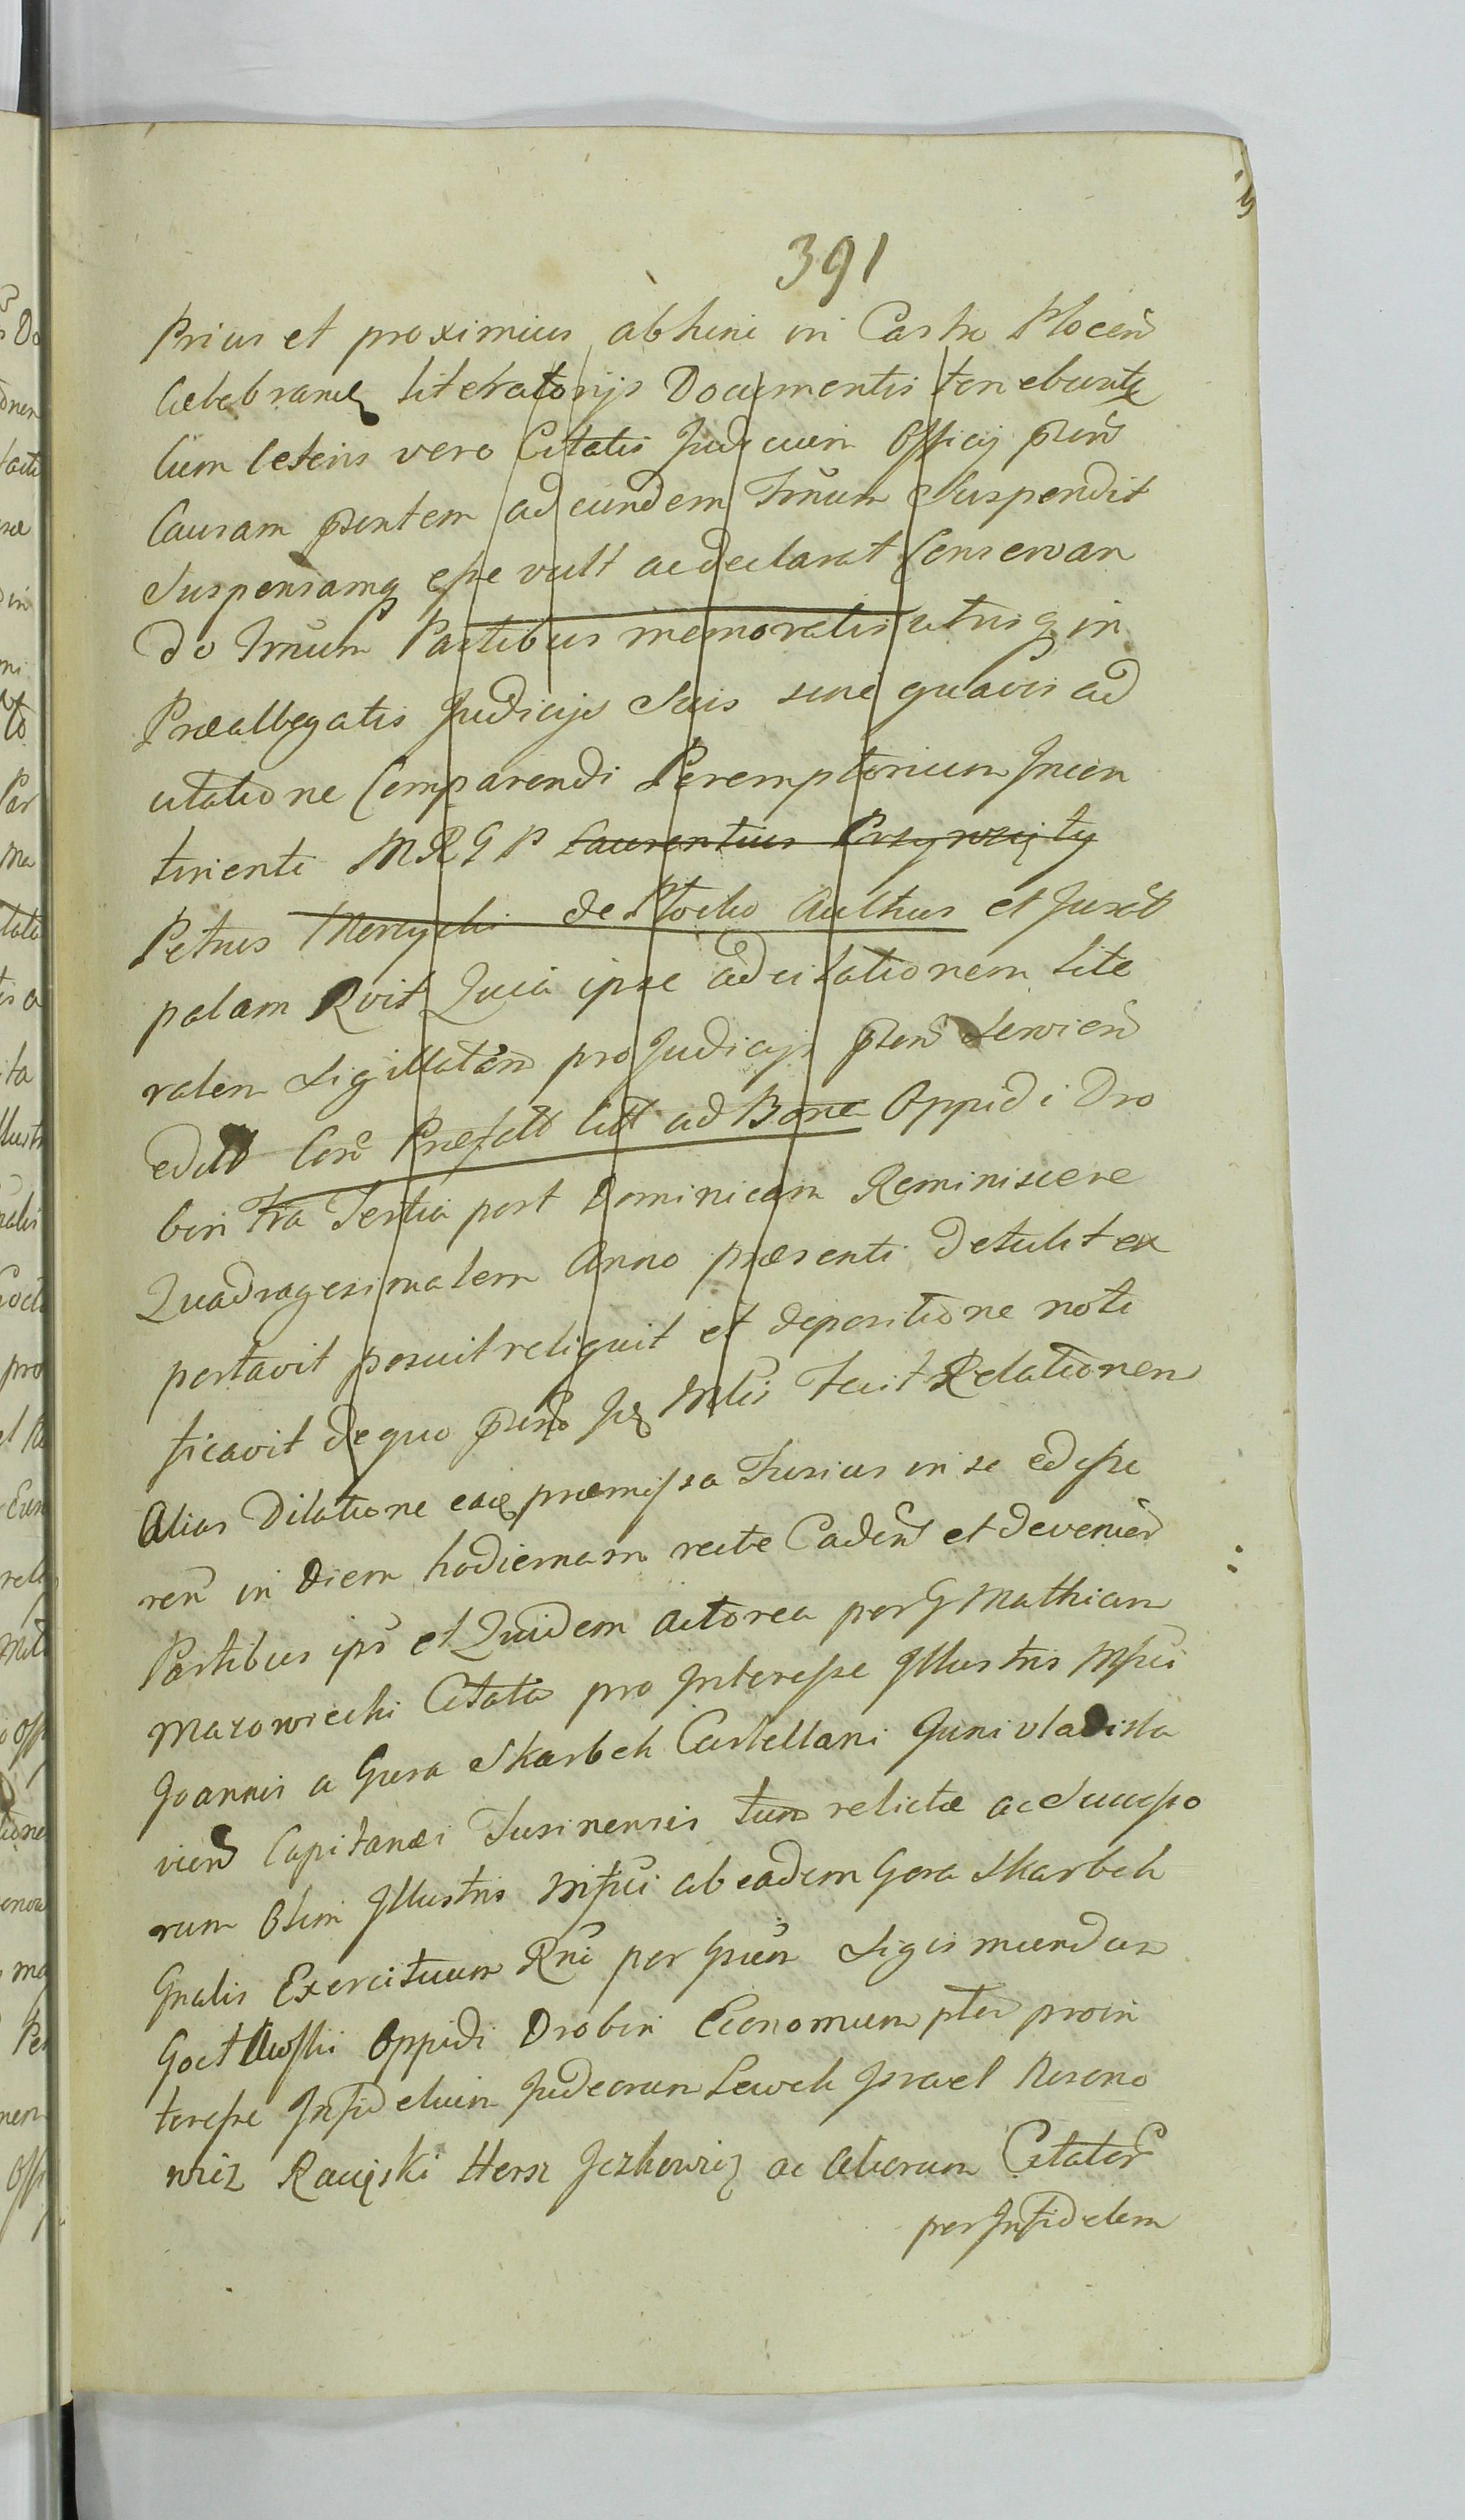 391
Prius et proximius abhinc in Castro Plocen
Celebrand literatorijs Documentis tenebunt
Cum ceteris vero Citatis Judicium Officij pñs
Causam pñtem ad eundem Tmũm Suspendit
Suspensamq esse vult ac declarat Conservan
do Tmũm Partibus memoratis utrisq in
Præallegatis Judicijs Suis sine quavis ad
citatione Comparendi Peremptorium
tinenti M R G P Laurentius
Petrus de Plocko et Jurat
palam Rvit Quia ipse adcitationem lite
ralem Sigillatam pro Judicijs pñs Servien
Cora Præfat ad Bona Oppidi Dro
bin Fra Tertia post Dominicam Reminiscere
Quadragesimalem Anno præsenti Detulit ex
portavit posuit reliquit et depositione noti
ficavit De quo pñs Fecit Relationem
Alias Dilatione eaq præmissa Fusius in se
ren in Diem hodiernam recte Caden et devenien
Partibus ips et Quidem Actorea per G Mathiam
Mazowiecki Citata pro Interesse Illustris Mfci
Joannis a Gura Skarbek Castellani Junivladisla
vien Capitanei Jusinensis tum relictæ ac Successo
rum Olim Illustris Mfci ab eadem Gora Skarbek
Gnalis Exercituum Rni per Gsum Sigismundum
Oppidi Drobin Economum pter pro in
teresse Infidelium Judeorum Lewek Israel
wicz Raciąski Hersz Jczkowicz ac Aliorum Citator
per Infidelem